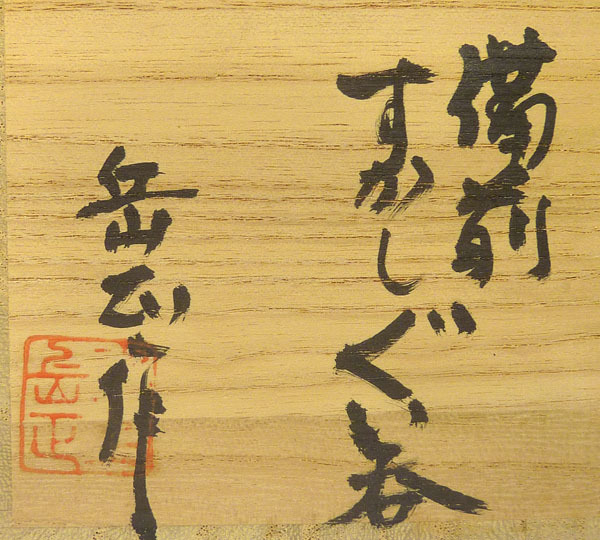 備前
すかしぐい呑
岳正作
岳正